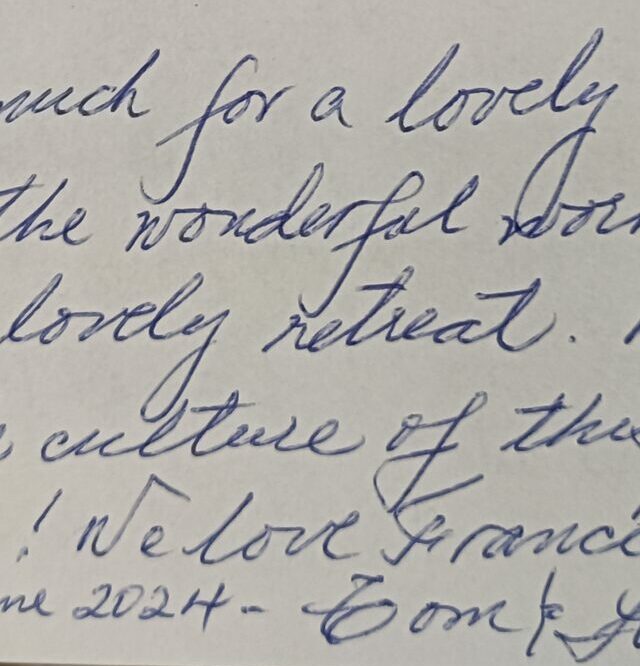 much for a lovely
the wonderful
lovely retreat.
culture of this
! We love France
2024 - Tom &